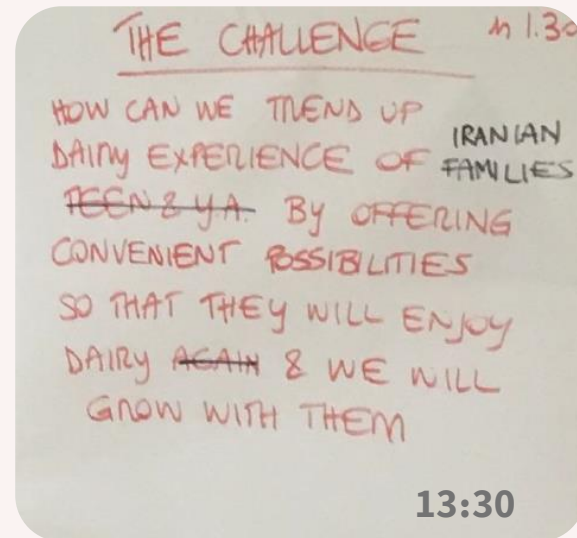 THE CHALLENGE
h 1.30
HOW CAN WE TREND UP
DAIRY EXPERIENCE OF IRANIAN FAMILIES
TEEN & Y.A. BY OFFERING
CONVENIENT POSSIBILITIES
SO THAT THEY WILL ENJOY
DAIRY AGAIN & WE WILL
GROW WITH THEM
13:30